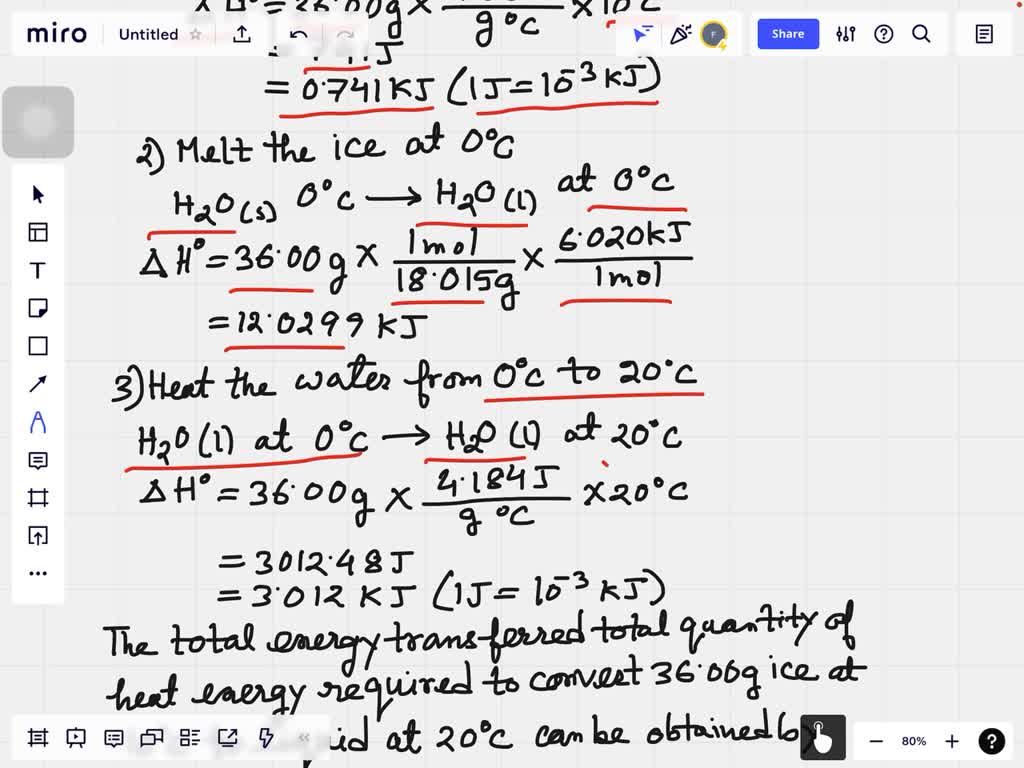 = 36.00g × / g °C × 10°C
miro Untitled Share
= J
= 0.741 KJ (1J = 10⁻³ KJ)
2) Melt the ice at 0°C
H₂O(s) 0°C → H₂O(l) at 0°C
ΔH° = 36.00 g × 1 mol / 18.015g × 6.020KJ / 1 mol
= 12.0299 KJ
3) Heat the water from 0°C to 20°C
H₂O(l) at 0°C → H₂O(l) at 20°C
ΔH° = 36.00g × 4.184J / g °C × 20°C
= 3012.48J
= 3.012 KJ (1J = 10⁻³ KJ)
The total energy transferred total quantity of
heat energy required to convert 36.00g ice at
at 20°C can be obtained by
80%